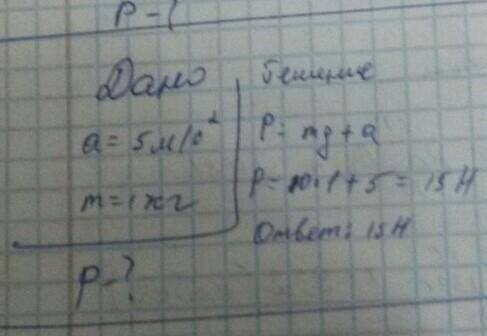 P-?
Дано
a = 5 м/с²
m = 1 кг
P-?
Решение
P = mg + a
P = 10·1 + 5 = 15 Н
Ответ: 15 Н